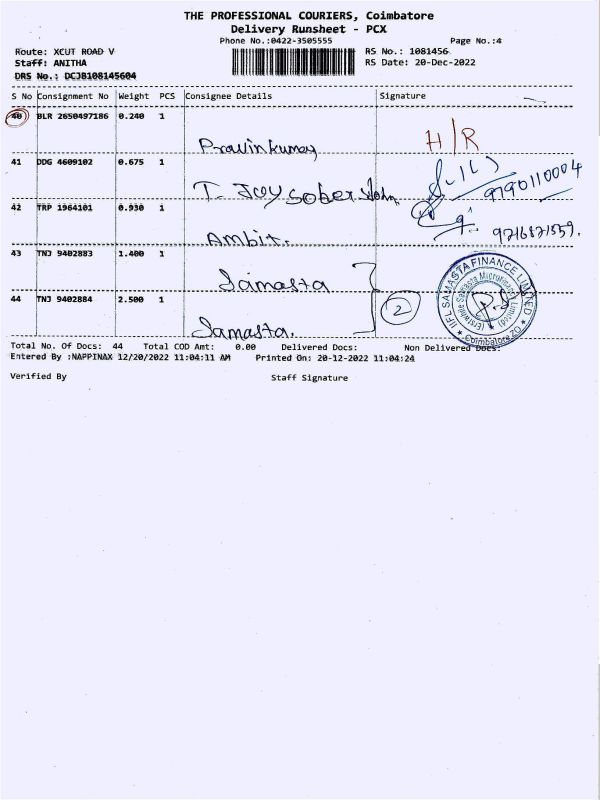 THE PROFESSIONAL COURIERS, Coimbatore
Delivery Runsheet - PCX
Phone No.:0422-3505555 Page No.:4
Route: XCUT ROAD V RS No.: 1081456
Staff: ANITHA RS Date: 20-Dec-2022
DRS No.: DCJB108145604
S No Consignment No Weight PCS Consignee Details Signature
40 BLR 2650497186 0.240 1
Pravinkumar H/R
41 DDG 4609102 0.675 1
T. Joy Sober John 9790110004
42 TRP 1964101 0.930 1
Ambit. 9716871559.
43 TNJ 9402883 1.400 1
Samasta
44 TNJ 9402884 2.500 1 2
Samasta.
IIFL SAMASTA FINANCE LIMITED
(Erstwhile Samasta Microfinance Limited)
Coimbatore
Total No. Of Docs: 44 Total COD Amt: 0.00 Delivered Docs: Non Delivered Docs:
Entered By :NAPPINAX 12/20/2022 11:04:11 AM Printed On: 20-12-2022 11:04:24
Verified By Staff Signature